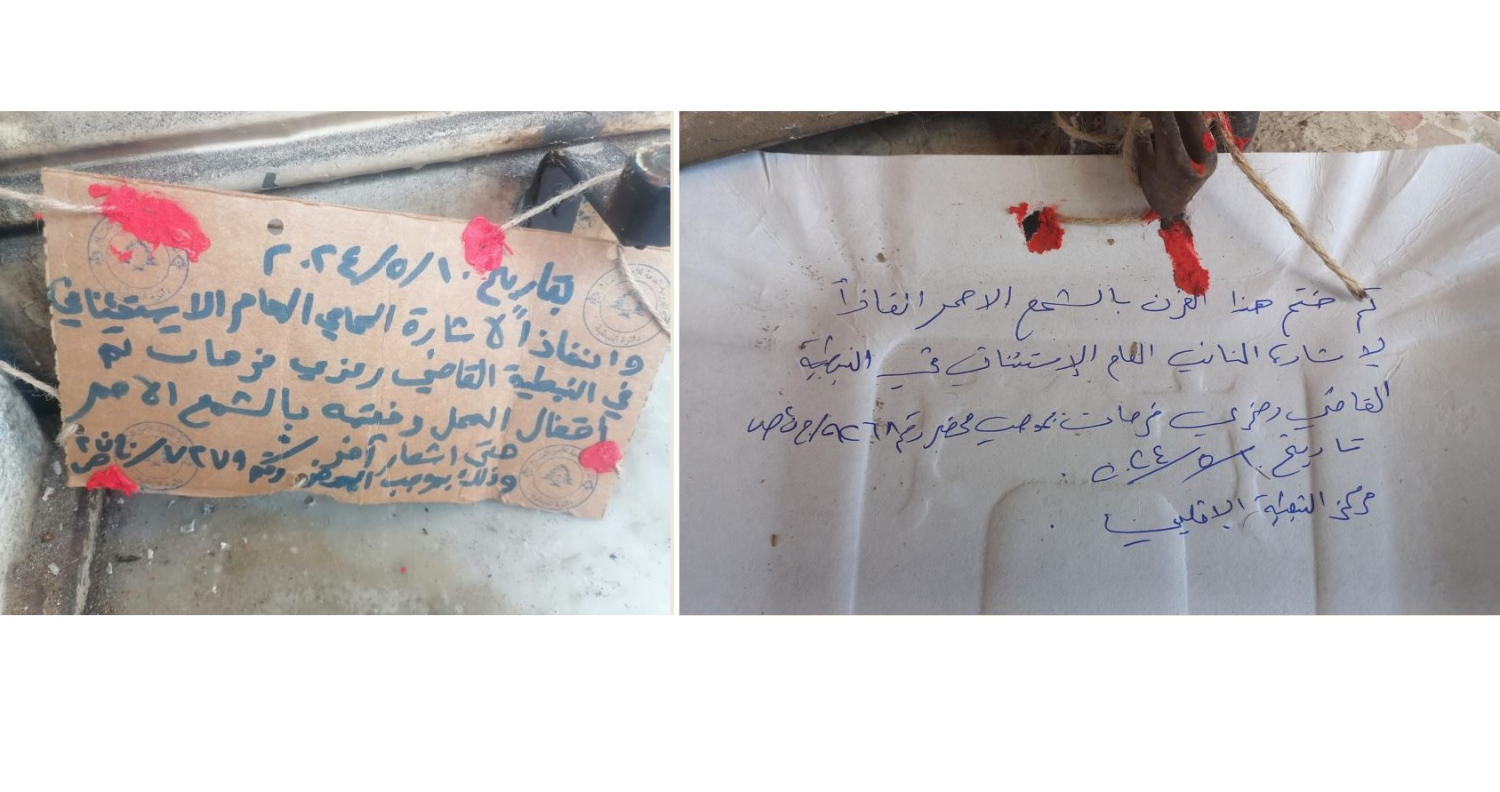 بتاريخ ٢٠٢٤/٥/١٠
وانفاذاً لاشارة المحامي العام الاستئنافي
في النبطية القاضي رمزي فرحات تم
إقفال المحل وختمه بالشمع الاحمر
حتى اشعار آخر
وذلك بموجب المحضر رقم ٧٢٧٩/
تم ختم هذا الفرن بالشمع الاحمر انفاذاً
لاشارة النائب العام الإستئنافي في النبطية
القاضي رمزي فرحات بموجب محضر رقم
تاريخ ٢٠٢٤/٥/١٠
مركز النبطية الاقليمي